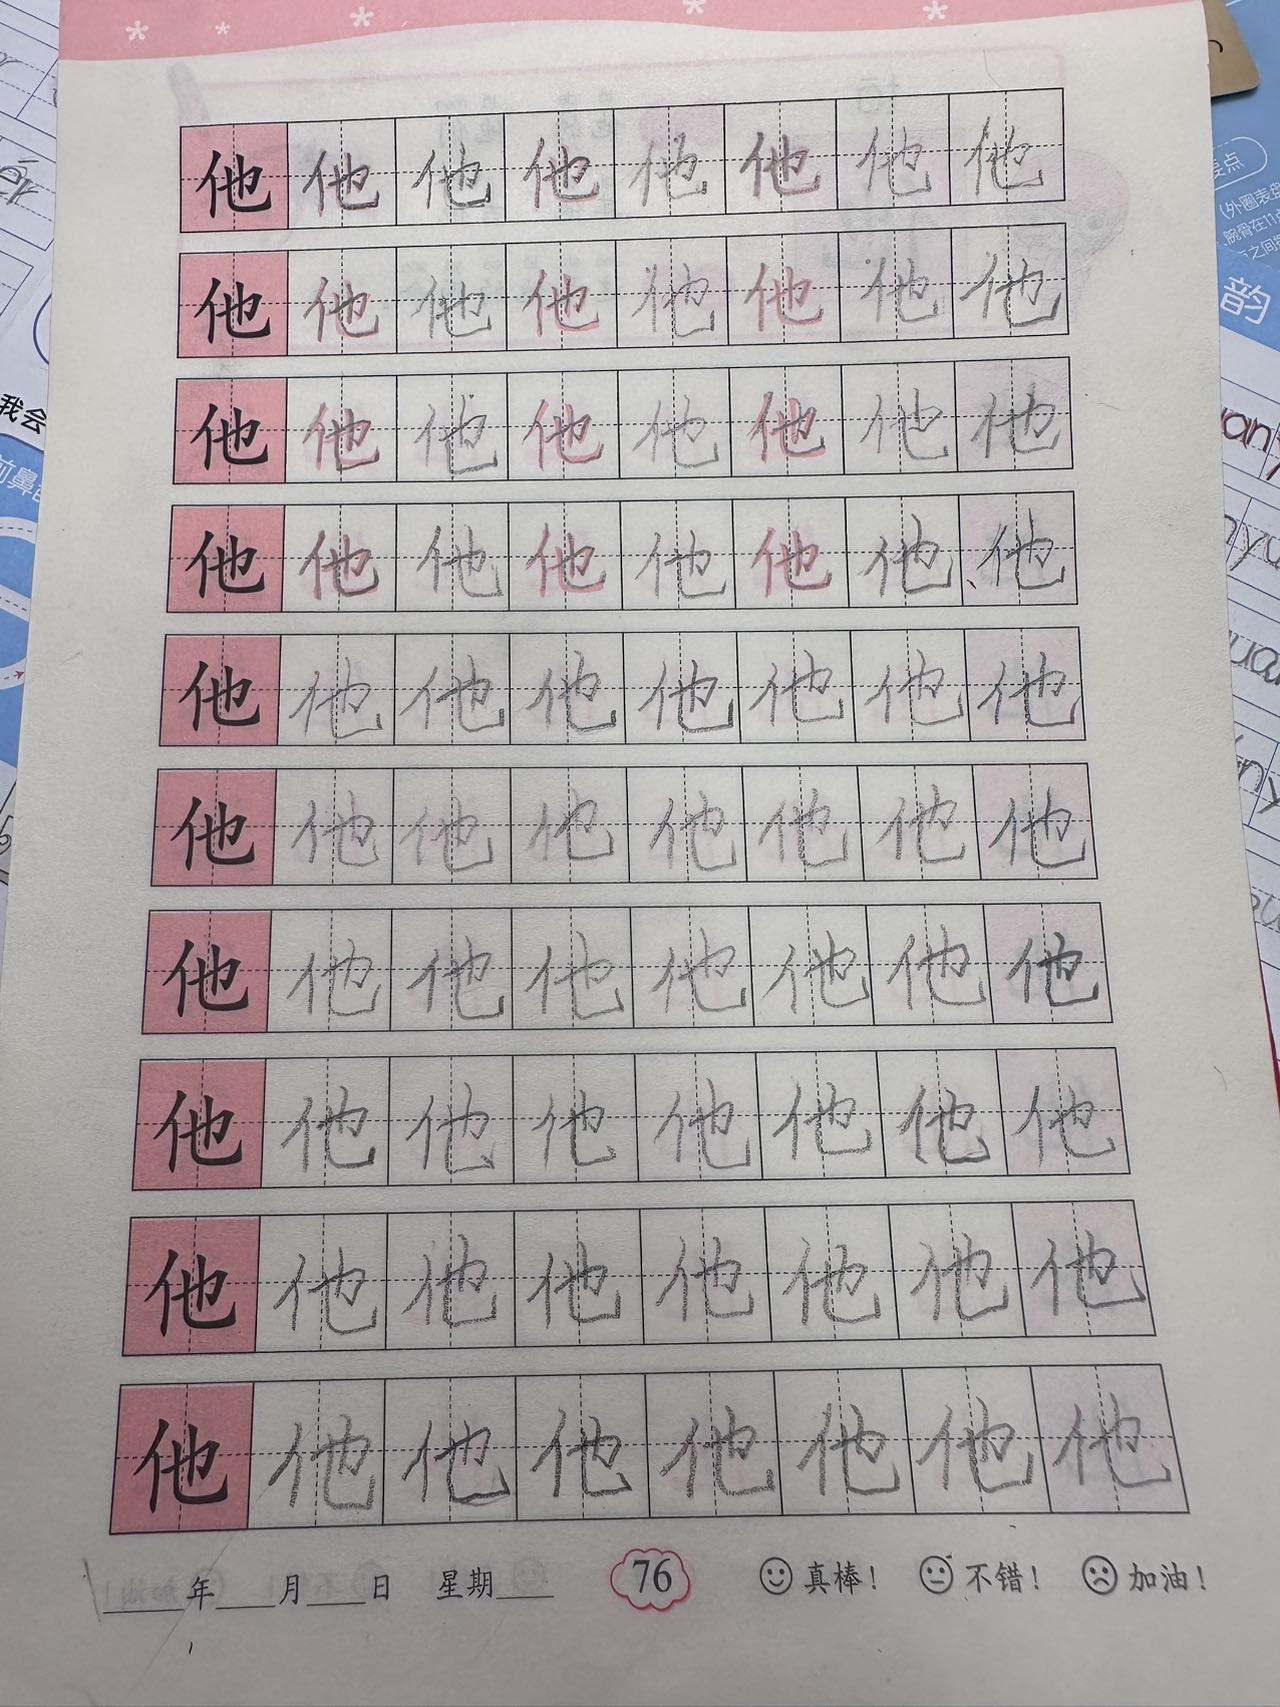 他他他他他他他他
他他他他他他他他
他他他他他他他他
他他他他他他他他
他他他他他他他他
他他他他他他他他
他他他他他他他他
他他他他他他他他
他他他他他他他他
他他他他他他他他
____年____月____日 星期____ 76 真棒! 不错! 加油!
我会
前鼻
要点
(外圈表
腕骨在11
之间
韵